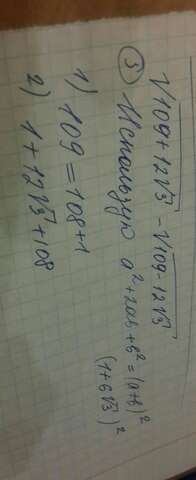 √109+12√3 - √109-12√3
③ Используя a²+2ab+b²=(a+b)²
1) 109=108+1
(1+6√3)²
2) 1+12√3+108